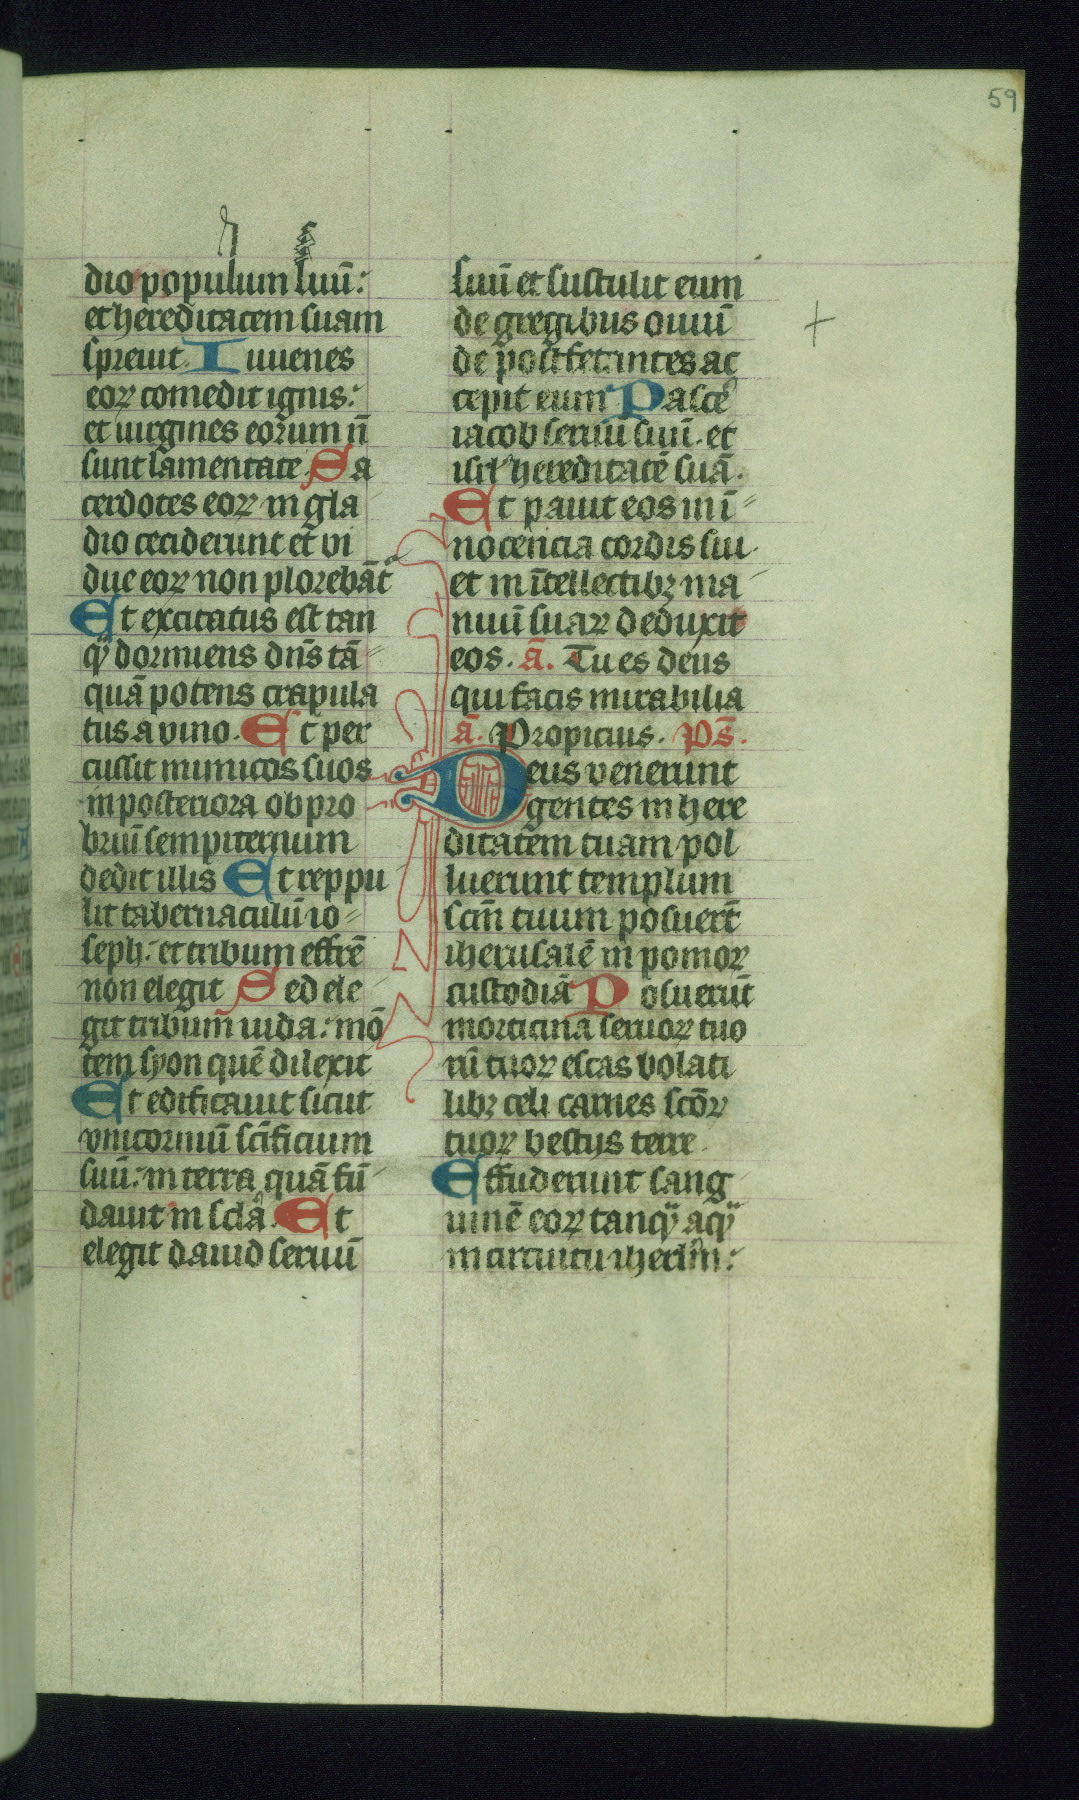 59
dio populum suū:
et hereditatem suam
spreuit. Iuuenes
eoꝝ comedit ignis:
et uirgines eorum n̄
sunt lamentate. Sa
cerdotes eoꝝ in gla
dio ceciderunt et vi
due eoꝝ non plorebāt
Et excitatus est tan
qͣ dormiens dn̄s tā
quā potens crapula
tus a vino. Et per
cussit inimicos suos
in posteriora obpro
briū sempiternum
dedit illis Et reppu
lit tabernaculū io
seph: et tribum effrē
non elegit Sed ele
git tribum iuda: mō
tem syon quē dilexit
Et edificauit sicut
vnicorniū sc̄ificium
suū: in terra quā fū
dauit in sclā. Et
elegit dauid seruū
suū et sustulit eum
de gregibus ouiū
de post fetantes ac
cepit eum Pascē
iacob seruū suū. et
isrl' hereditatē suā.
Et pauit eos in ī
nocencia cordis sui.
et in ītellectibꝫ ma
nuū suaꝝ deduxit
eos. ā. Tu es deus
qui facis mirabilia
ā. Propicius. Ps̄.
Deus venerunt
gentes in here
ditatem tuam pol
luerunt templum
scm̄ tuum posuert̄
iherusalē in pomoꝝ
custodiā Posuerūt
morticina seruoꝝ tuo
rū tuoꝝ escas volati
libꝫ celi carnes scōꝝ
tuoꝝ bestijs terre
Effuderunt sang
uinē eoꝝ tanqͣ aqͣ
in circuitu iherlm̄: